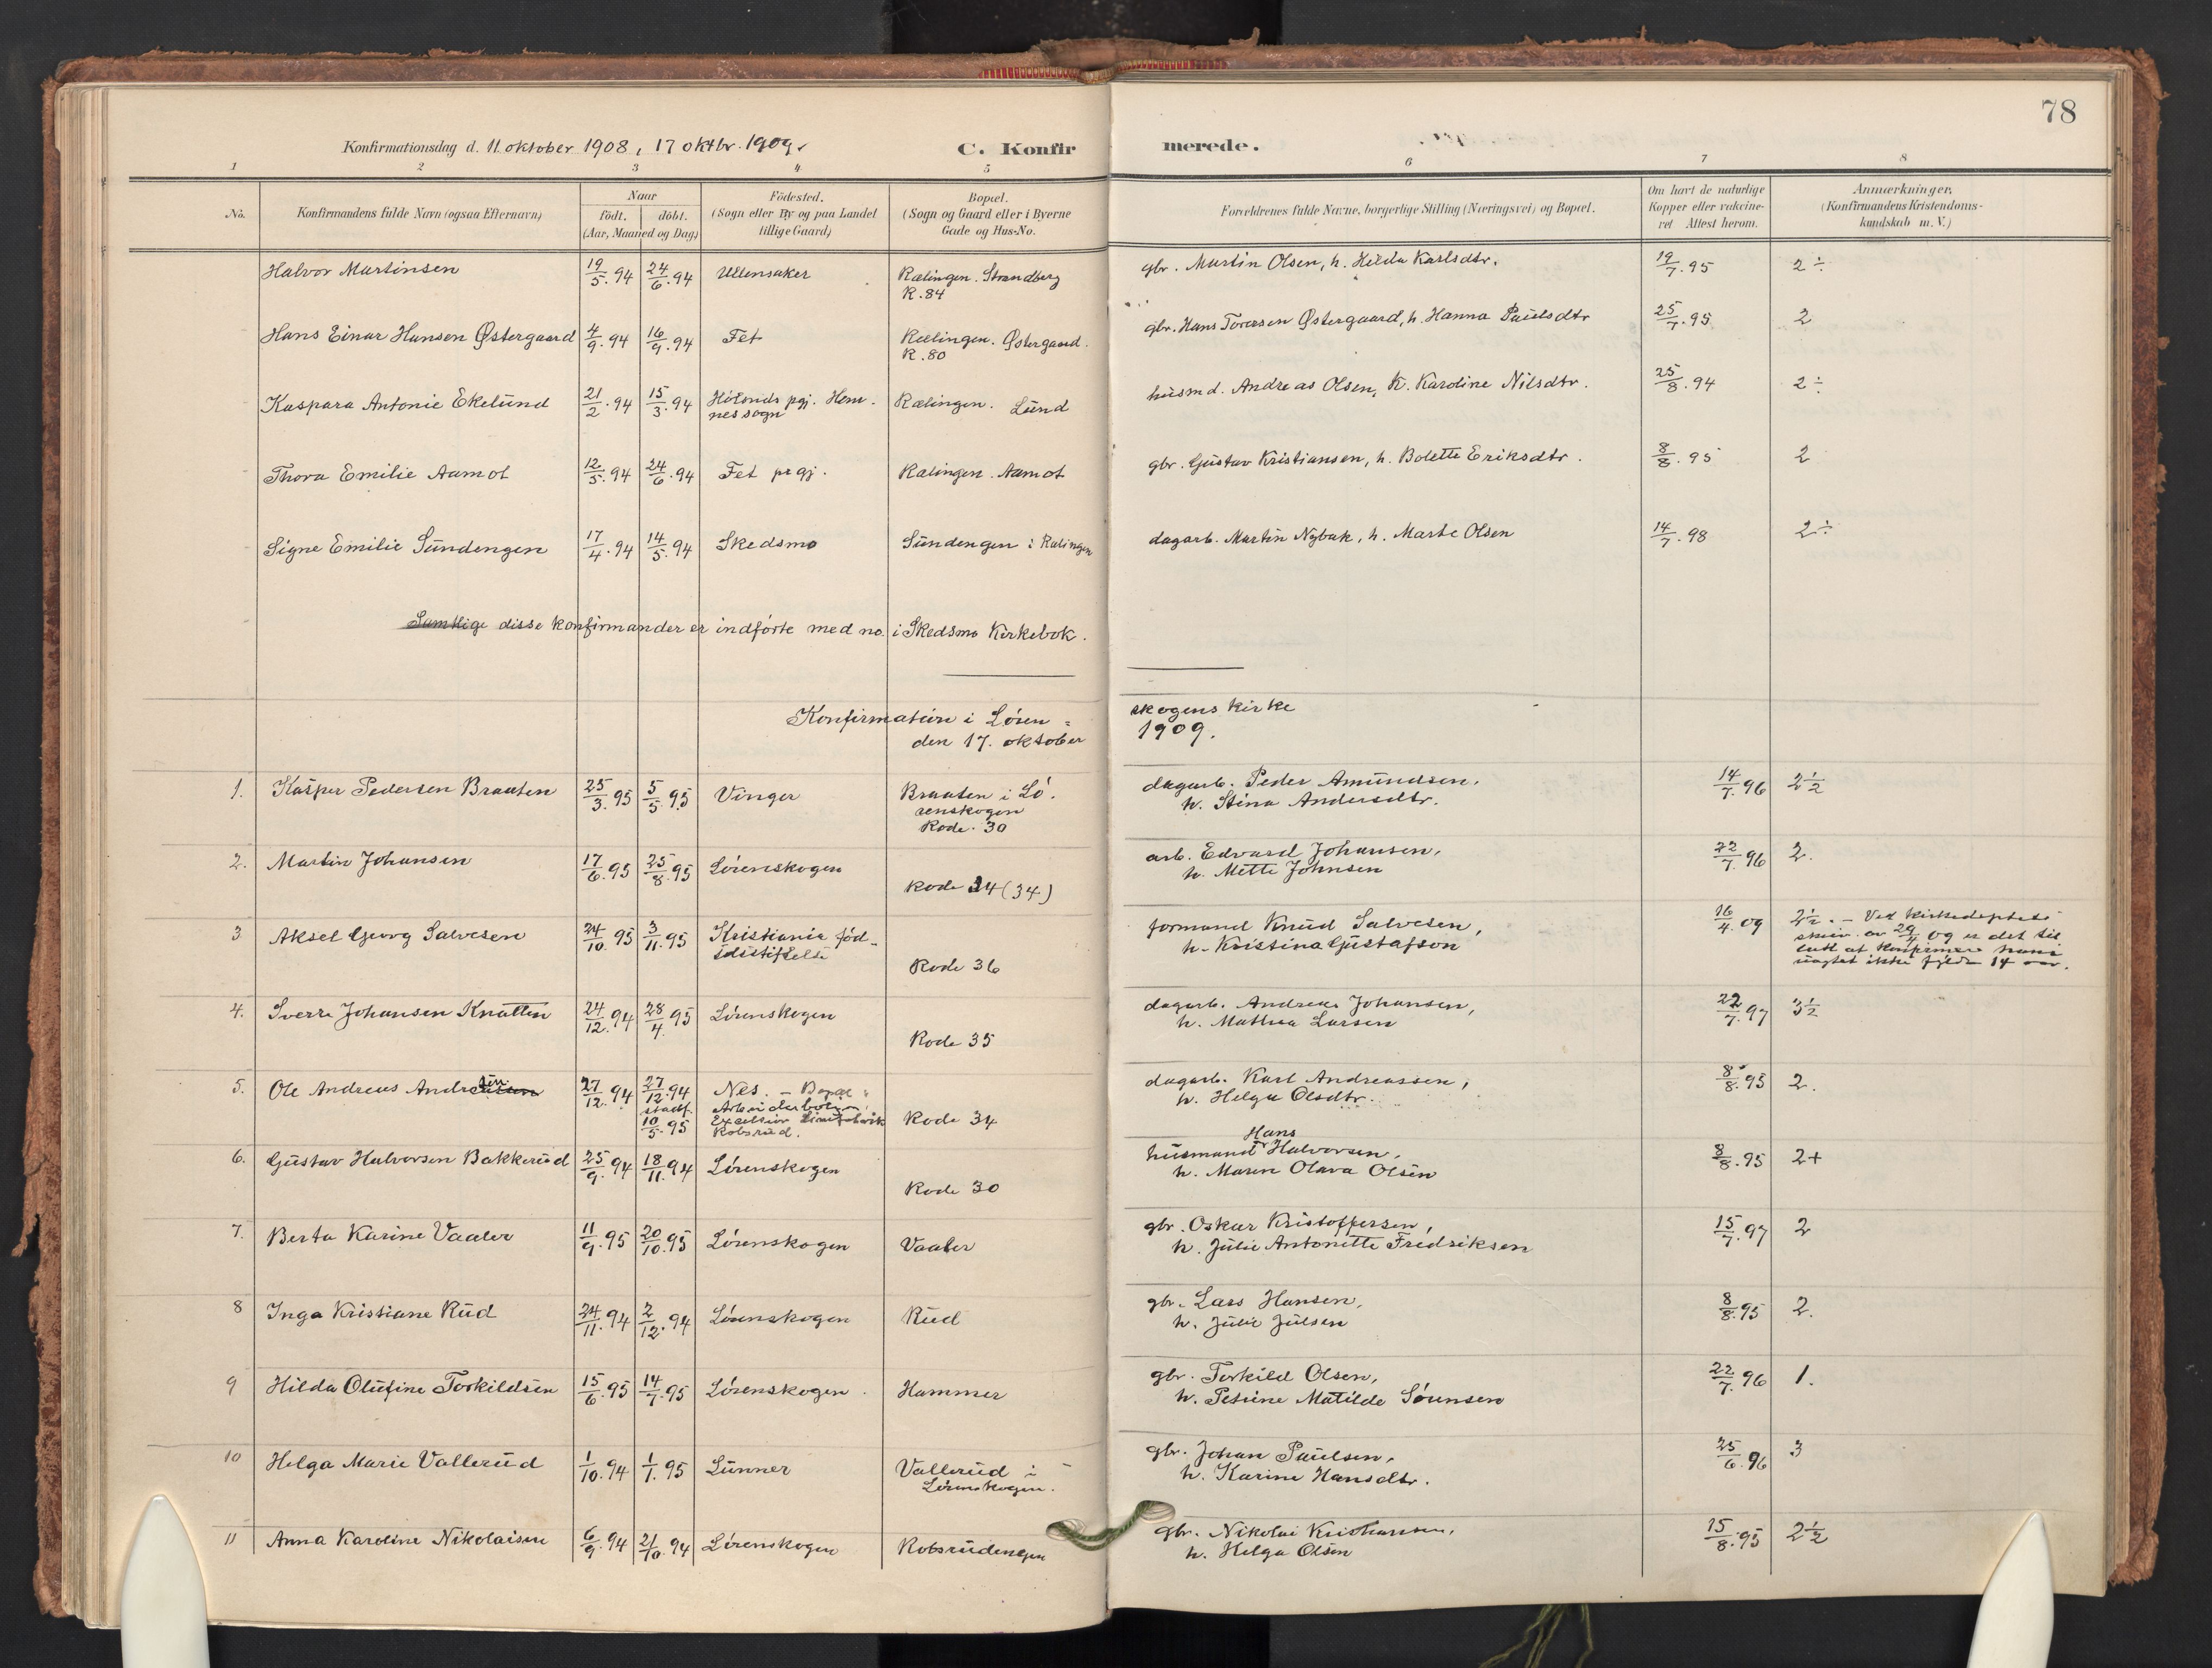 78
Konfirmationsdag d. 11 oktober 1908, 17 oktbr. 1909.
C. Konfirmerede.
1 2 3 4 5 6 7 8
No.
Konfirmandens fulde Navn (ogsaa Efternavn)
Naar
født. døbt.
(Aar, Maaned og Dag)
Fødested.
(Sogn eller By og paa Landet
tillige Gaard)
Bopæl.
(Sogn og Gaard eller i Byerne
Gade og Hus-No.
Forældrenes fulde Navne, borgerlige Stilling (Næringsvei) og Bopæl.
Om havt de naturlige
Kopper eller vakcine-
ret Attest herom.
Anmærkninger,
(Konfirmandens Kristendoms-
kundskab m. V.)
Halvor Martinsen 19/5. 94 24/6. 94 Ullensaker Rælingen. Strandberg gbr. Martin Olsen, h. Hilda Karlsdtr. 19/7. 95 2÷
R. 84
Hans Einar Hansen Østergaard 4/9. 94 16/9. 94 Fet Rælingen. Østergaard. gbr. Hans Østergaard, h. Hanna Paulsdtr 25/7. 95 2
R. 80
Kaspara Antonie Ekelund 21/2. 94 15/3. 94 Hølands pgj. Hem- Rælingen. Lund husmd. Andreas Olsen, K. Karoline Nilsdtr. 25/8. 94 2÷
nes sogn
Thora Emilie Aamot 12/5. 94 24/6. 94 Fet prgj. Rælingen. Aamot gbr. Gustav Kristiansen, h. Bolette Eriksdtr. 8/8. 95 2
Signe Emilie Sundengen 17/4. 94 14/5. 94 Skedsmo Sundengen i Rælingen dagarb. Martin Nybak, h. Marte Olsen 14/7. 98 2÷
Samtlige disse konfirmander er indførte med no. i Skedsmo Kirkebok.
Konfirmation i Løren= skogens kirke
den 17. oktober 1909.
1. Kasper Pedersen Braaten 25/3. 95 5/5. 95 Vinger Braaten i Lø- dagarb. Peder Amundsen, 14/7. 96 2½
renskogen h. Stina Andersdtr.
Rode. 30
2. Martin Johansen 17/6. 95 25/8. 95 Lørenskogen Rode 34 (34) arb. Edvard Johansen, 22/7. 96 2.
h. Mette Johnsen
3 Aksel Georg Salvesen 24/10. 95 3/11. 95 Kristiania fød- Rode 36 formand Knud Salvesen, 16/4. 09 2½. – Ved kirkedeptets
selsstiftelse h. Kristina Gustafson skriv. av 29/4 09 er det til
latt at konfirmere hans
uagtet ikke fyldte 14 aar.
4. Sverre Johansen Knatten 24/12. 94 28/4. 95 Lørenskogen Rode 35 dagarb. Andreas Johansen, 22/7. 97 3½
h. Mathea Larsen
5. Ole Andreas Andresen 27/12. 94 27/12. 94 Nes. – Bopæl: Rode 34 dagarb. Karl Andreassen, 8/8. 95 2.
stadf. Arbeiderbolig h. Helga Olsdtr.
10/5. 95 Excelsior Limfabrik
Robsrud.
6. Gustav Halvorsen Bakkerud 25/9. 94 18/11. 94 Lørenskogen Rode 30 husmand Hans Halvorsen, 8/8. 95 2+
h. Maren Olava Olsen
7. Berta Karine Vaaler 11/9. 95 20/10. 95 Lørenskogen Vaaler gbr. Oskar Kristoffersen, 15/7. 97 2
h. Julie Antonette Fredriksen
8 Inga Kristiane Rud 24/11. 94 2/12. 94 Lørenskogen Rud gbr. Lars Hansen, 8/8. 95 2.
h. Julie Julsen
9 Hilda Olufine Torkildsen 15/6. 95 14/7. 95 Lørenskogen. Hammer gbr. Torkild Olsen, 22/7. 96 1.
h. Petrine Matilde Sørensen
10 Helga Marie Vallerud 1/10. 94 1/1. 95 Lunner Vallerud i gbr. Johan Paulsen, 25/6. 96 3
Lørenskogen. h. Karine Hansdtr.
11 Anna Karoline Nikolaisen 6/9. 94 21/10. 94 Lørenskogen Robsrudengen gbr. Nikolai Kristiansen, 15/8. 95 2½
h. Helga Olsen